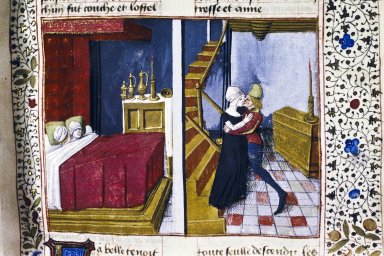 chun fut couche et lossel
tresse et anne
a belle tenoit
toute seulle descendre les